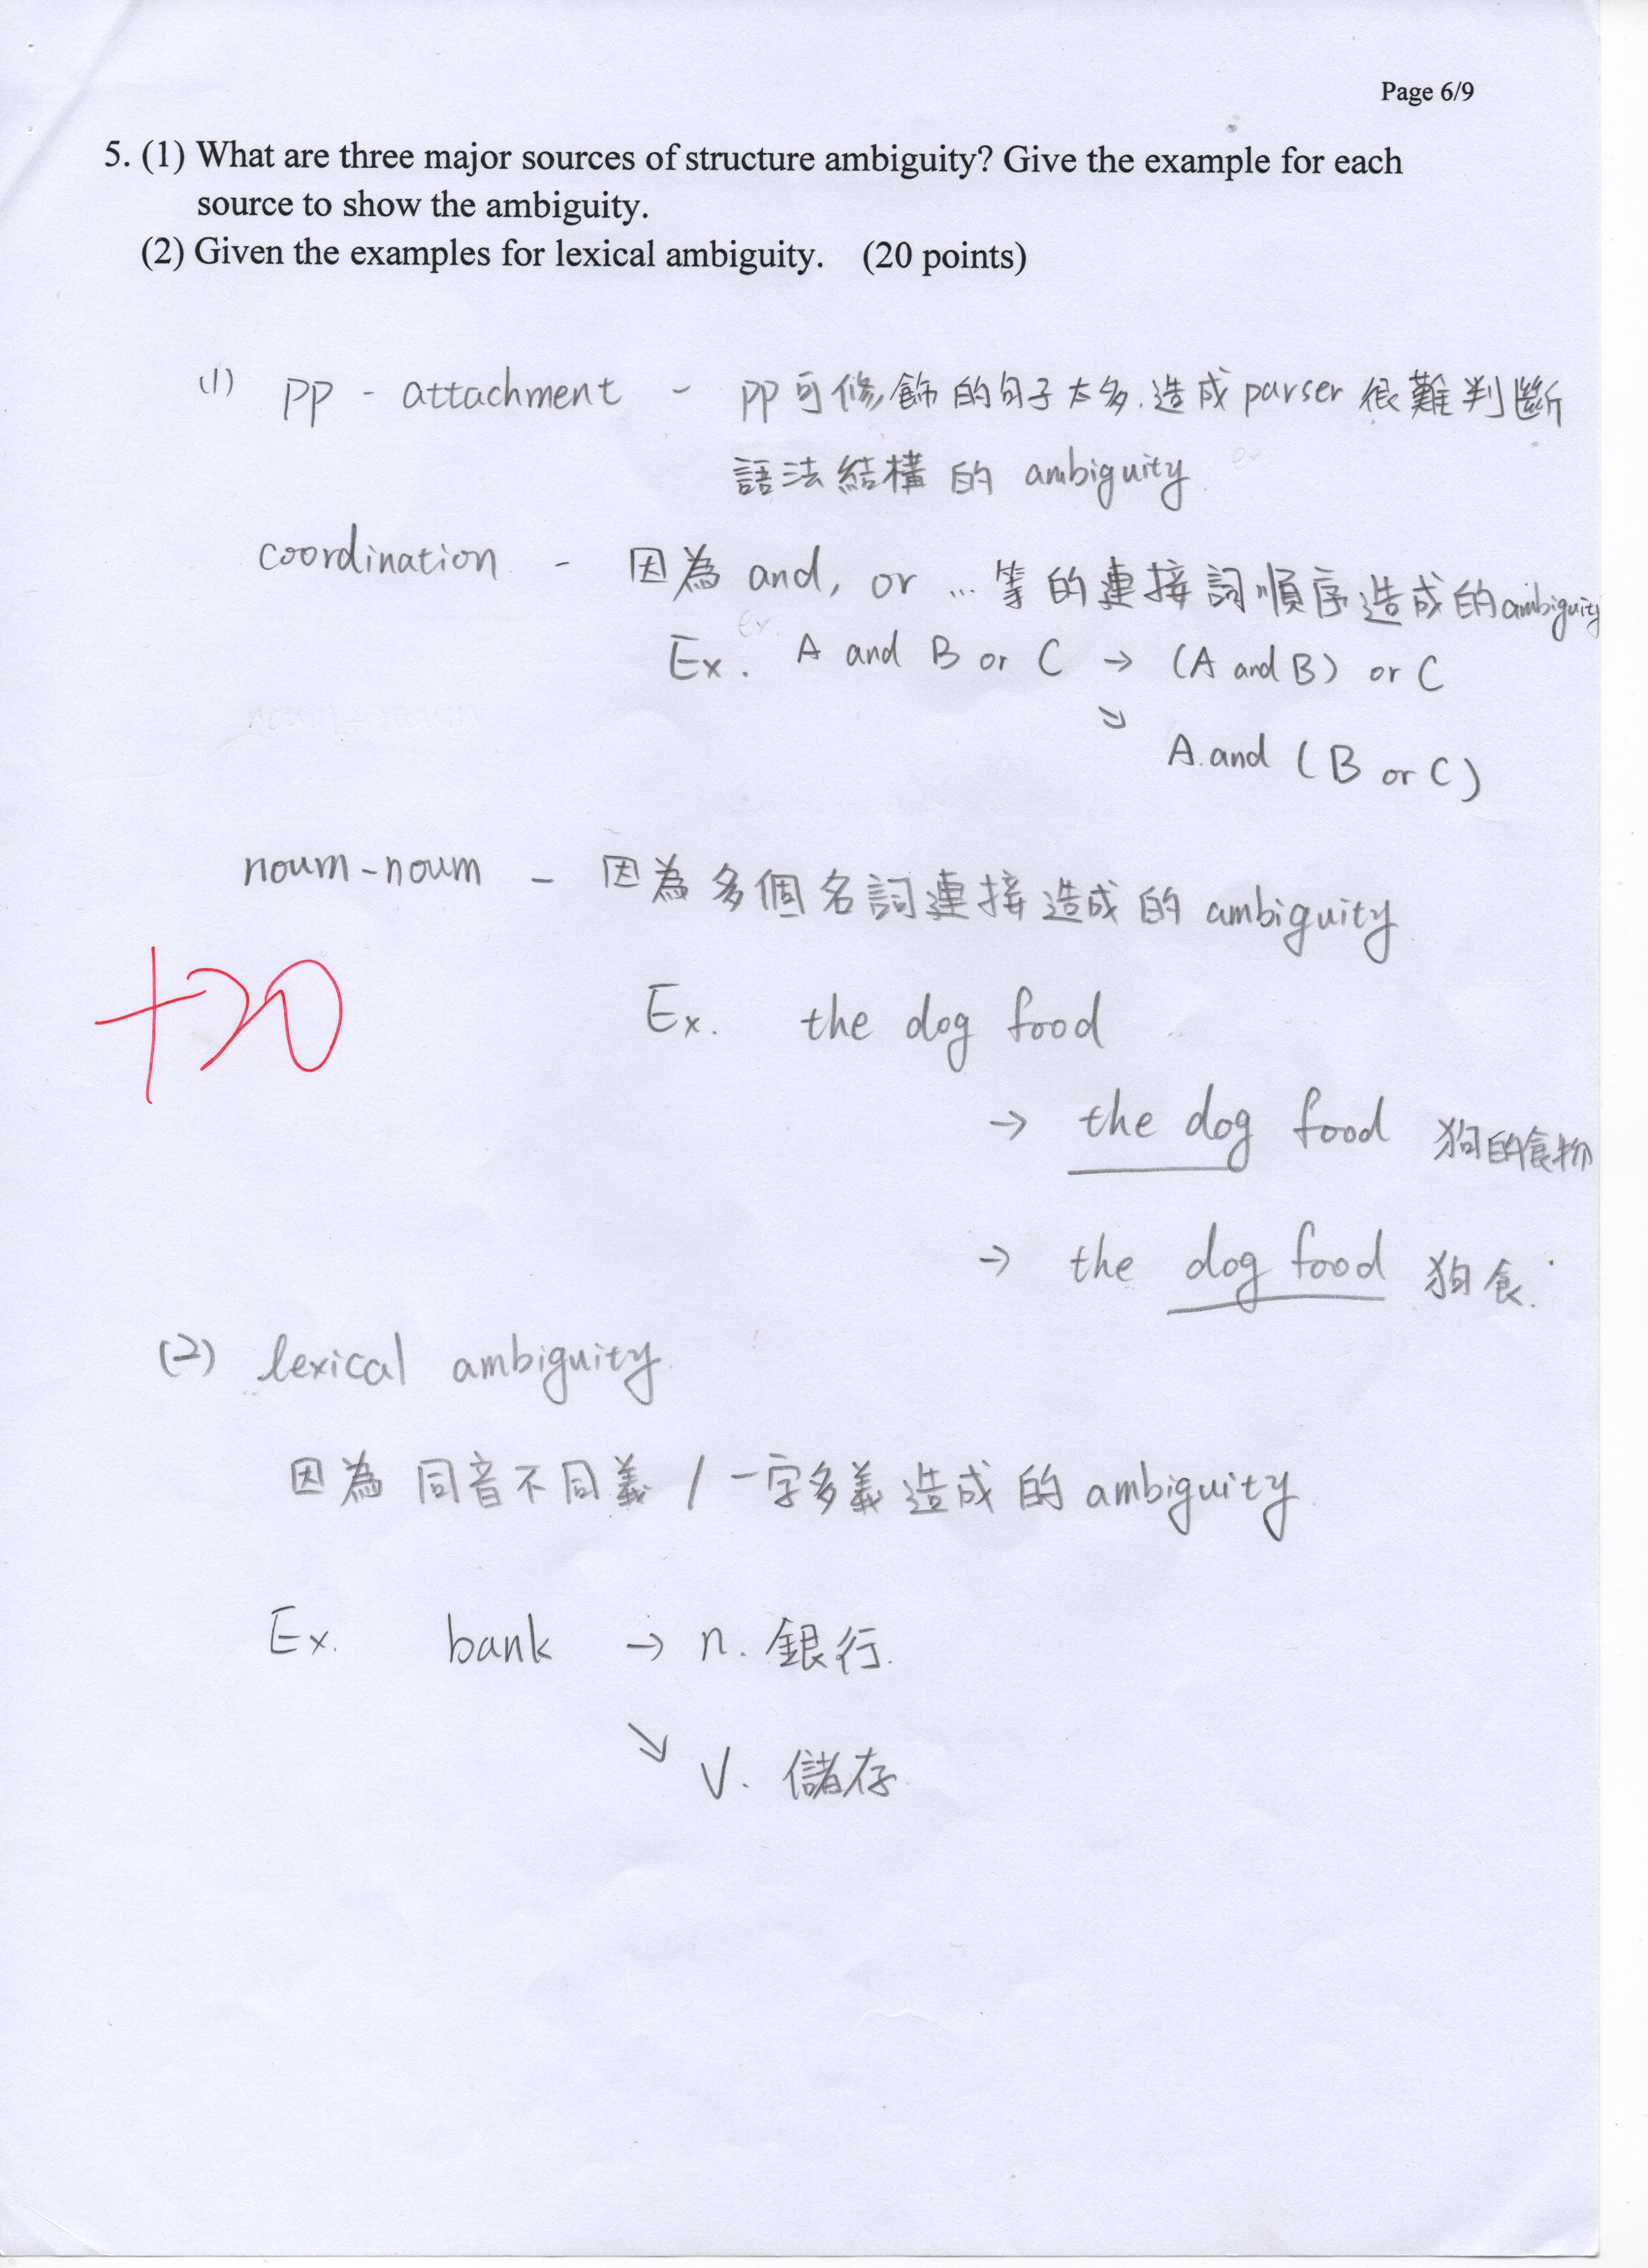 Page 6/9
5. (1) What are three major sources of structure ambiguity? Give the example for each
source to show the ambiguity.
(2) Given the examples for lexical ambiguity. (20 points)
(1) pp - attachment - pp可修飾的句子太多.造成parser很難判斷
語法結構的 ambiguity
coordination - 因為 and, or ... 等的連接詞順序造成的ambiguity
Ex. A and B or C → (A and B) or C
↘
A.and (B or C)
noum-noum - 因為多個名詞連接造成的 ambiguity
+20
Ex. the dog food
→ the dog food 狗的食物
→ the dog food 狗食.
(2) lexical ambiguity
因為 同音不同義 / 一字多義 造成的 ambiguity
Ex. bank → n. 銀行.
↘ V. 儲存